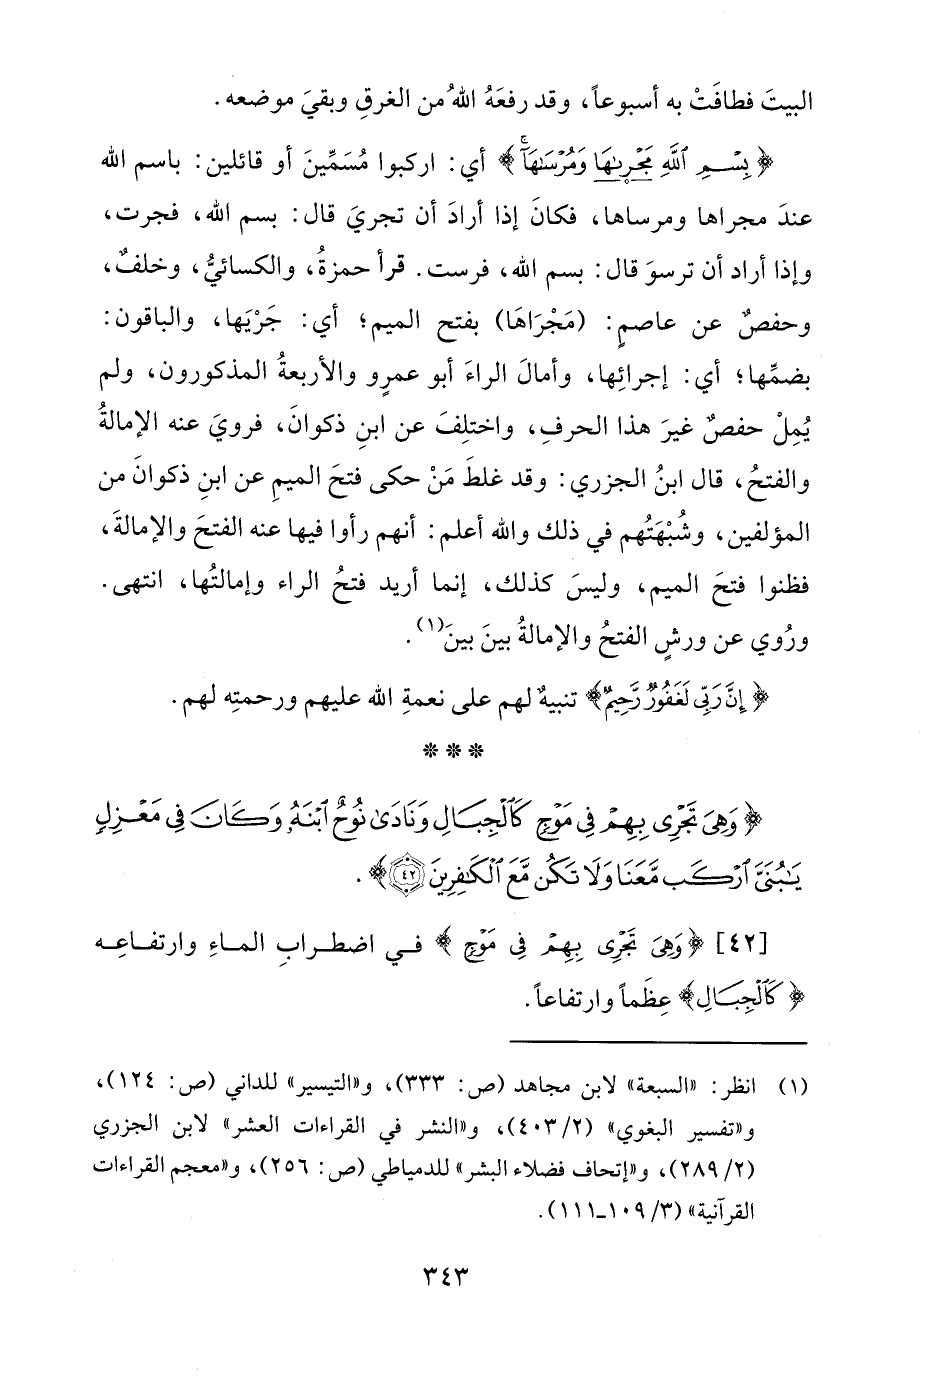 البيتَ فطافَتْ به أسبوعاً، وقد رفعَهُ اللهُ من الغرقِ وبقيَ موضعه.
﴿بِسْمِ ٱللَّهِ مَجْرٜىٰهَا وَمُرْسَىٰهَآ﴾ أي: اركبوا مُسَمِّينَ أو قائلين: باسم الله
عندَ مجراها ومرساها، فكانَ إذا أرادَ أن تجريَ قال: بسم الله، فجرت،
وإذا أراد أن ترسوَ قال: بسم الله، فرست. قرأ حمزةُ، والكسائيُّ، وخلفٌ،
وحفصٌ عن عاصمٍ: (مَجْرَاهَا) بفتح الميم؛ أي: جَرْيَها، والباقون:
بضمِّها؛ أي: إجرائِها، وأمالَ الراءَ أبو عمرٍو والأربعةُ المذكورون، ولم
يُمِلْ حفصٌ غيرَ هذا الحرفِ، واختلِفَ عن ابنِ ذكوانَ، فرويَ عنه الإمالةُ
والفتحُ، قال ابنُ الجزري: وقد غلطَ مَنْ حكى فتحَ الميمِ عن ابنِ ذكوانَ من
المؤلفين، وشُبْهَتُهم في ذلك والله أعلم: أنهم رأوا فيها عنه الفتحَ والإمالةَ،
فظنوا فتحَ الميم، وليسَ كذلك، إنما أريد فتحُ الراء وإمالتُها، انتهى.
ورُوي عن ورشٍ الفتحُ والإمالةُ بينَ بينَ(١).
﴿إِنَّ رَبِّى لَغَفُورٌ رَّحِيمٌ﴾ تنبيهٌ لهم على نعمةِ الله عليهم ورحمتِه لهم.
***
﴿وَهِىَ تَجْرِى بِهِمْ فِى مَوْجٍ كَٱلْجِبَالِ وَنَادَىٰ نُوحٌ ٱبْنَهُۥ وَكَانَ فِى مَعْزِلٍ
يَٰبُنَىَّ ٱرْكَب مَّعَنَا وَلَا تَكُن مَّعَ ٱلْكَٰفِرِينَ ٤٢﴾.
[٤٢] ﴿وَهِىَ تَجْرِى بِهِمْ فِى مَوْجٍ﴾ في اضطرابِ الماءِ وارتفاعِه
﴿كَٱلْجِبَالِ﴾ عِظَماً وارتفاعاً.
(١) انظر: «السبعة» لابن مجاهد (ص: ٣٣٣)، و«التيسير» للداني (ص: ١٢٤)،
و«تفسير البغوي» (٢/ ٤٠٣)، و«النشر في القراءات العشر» لابن الجزري
(٢/ ٢٨٩)، و«إتحاف فضلاء البشر» للدمياطي (ص: ٢٥٦)، و«معجم القراءات
القرآنية» (٣/ ١٠٩-١١١).
٣٤٣